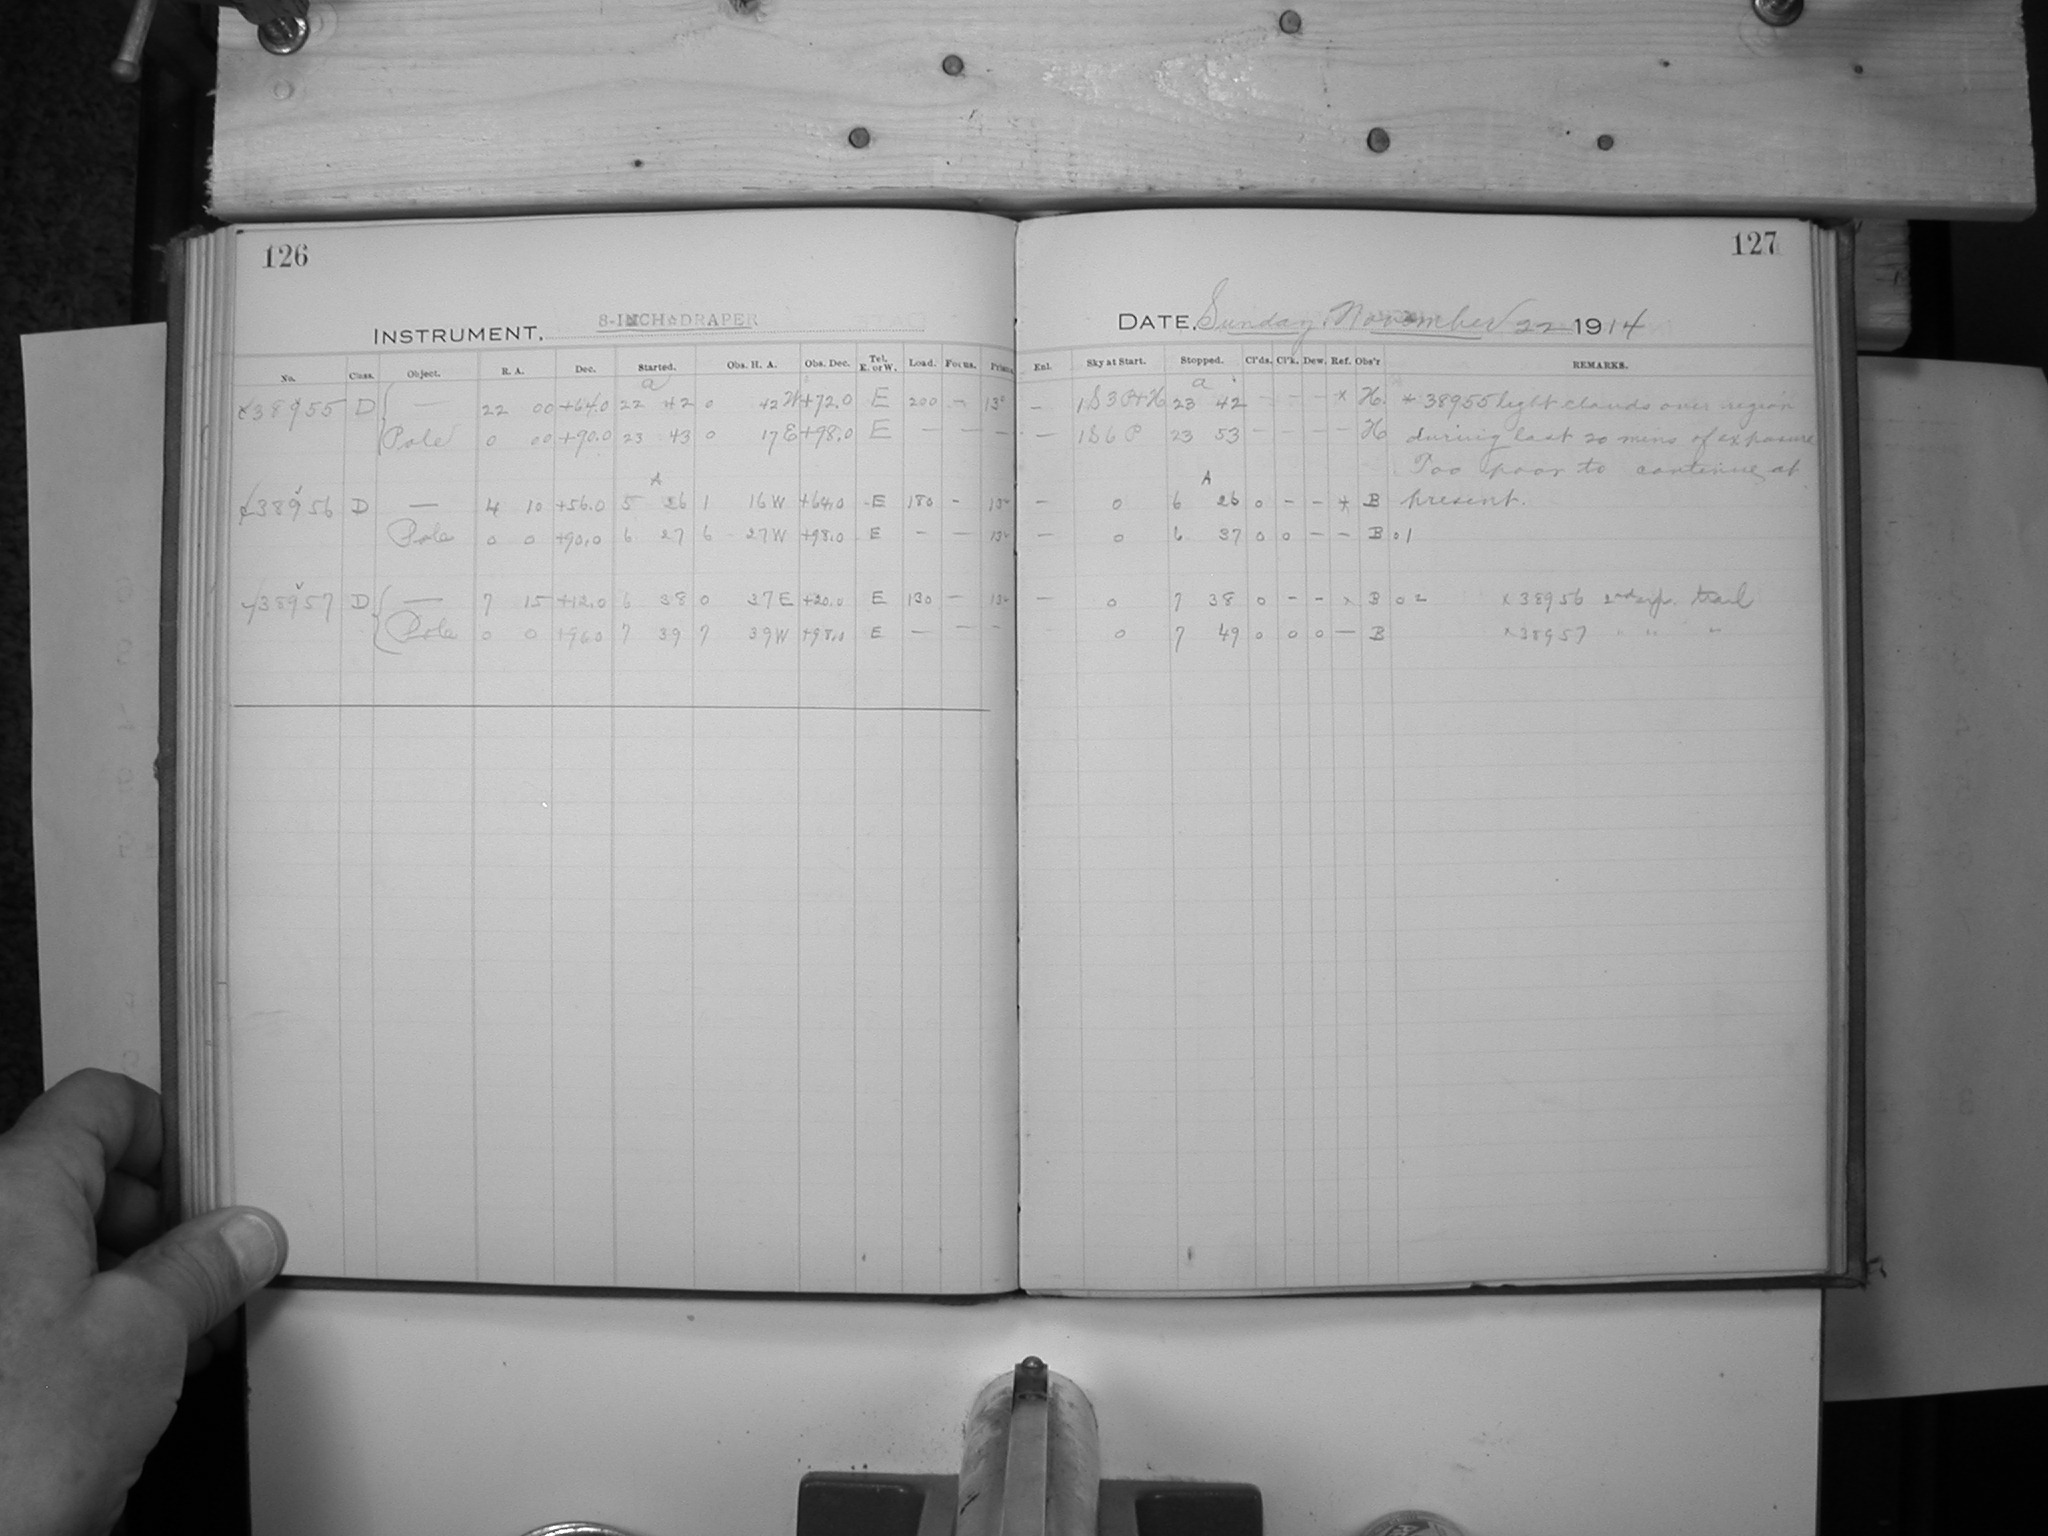 126
INSTRUMENT, 8-INCH DRAPER
No. Class. Object. R. A. Dec. Started. Obs. H. A. Obs. Dec. Tel. E. or W. Load. Focus.
a
38955 D — 22 00 +64.0 22 42 0 42 W +72.0 E 200 —
Pole 0 00 +90.0 23 43 0 17 E +98.0 E — —
A
38956 D — 4 10 +56.0 5 26 1 16 W +64.0 E 180 -
Pole 0 0 +90.0 6 27 6 27 W +98.0 E - -
38957 D — 7 15 +12.0 6 38 0 37 E +20.0 E 130 -
Pole 0 0 7 39 7 39 W +98.0 E —
127
DATE, Sunday, November 22 1914
Enl. Sky at Start. Stopped. Cl'ds. Cl'k. Dew. Ref. Obs'r REMARKS.
a
— 23 42 - - - * H. * 38955 light clouds over region
— 1S6 P 23 53 - - - - H during last 20 mins of exposure
Too poor to continue at
A
— 0 6 26 0 - - * B present.
— 0 6 37 0 0 - - B 01
— 0 7 38 0 - - x B 02 x 38956 2nd trail
0 7 49 0 0 0 — B x 38957 " " "